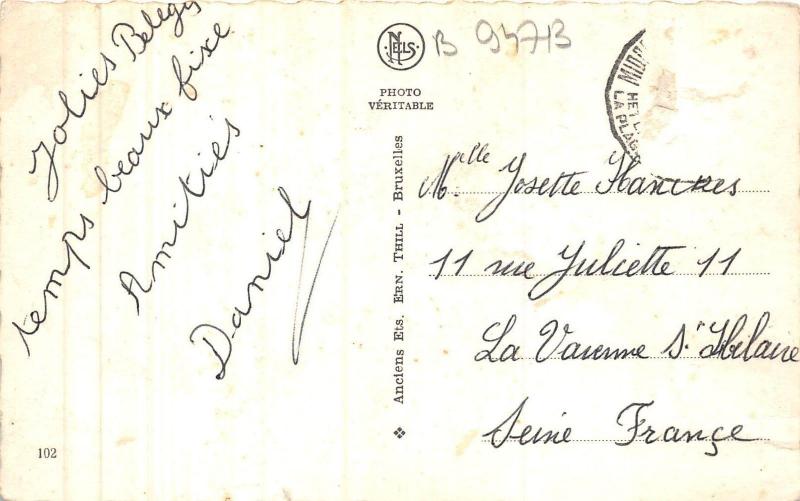 Jolies Beleges
temps beaux fixe
Amitiés
Daniel
NELS
PHOTO
VÉRITABLE
B 9473
Anciens Ets. ERN. THILL - Bruxelles
HET
LA PLAG
Melle Josette
11 rue Juliette 11
La Varenne St Hilaire
Seine France
102